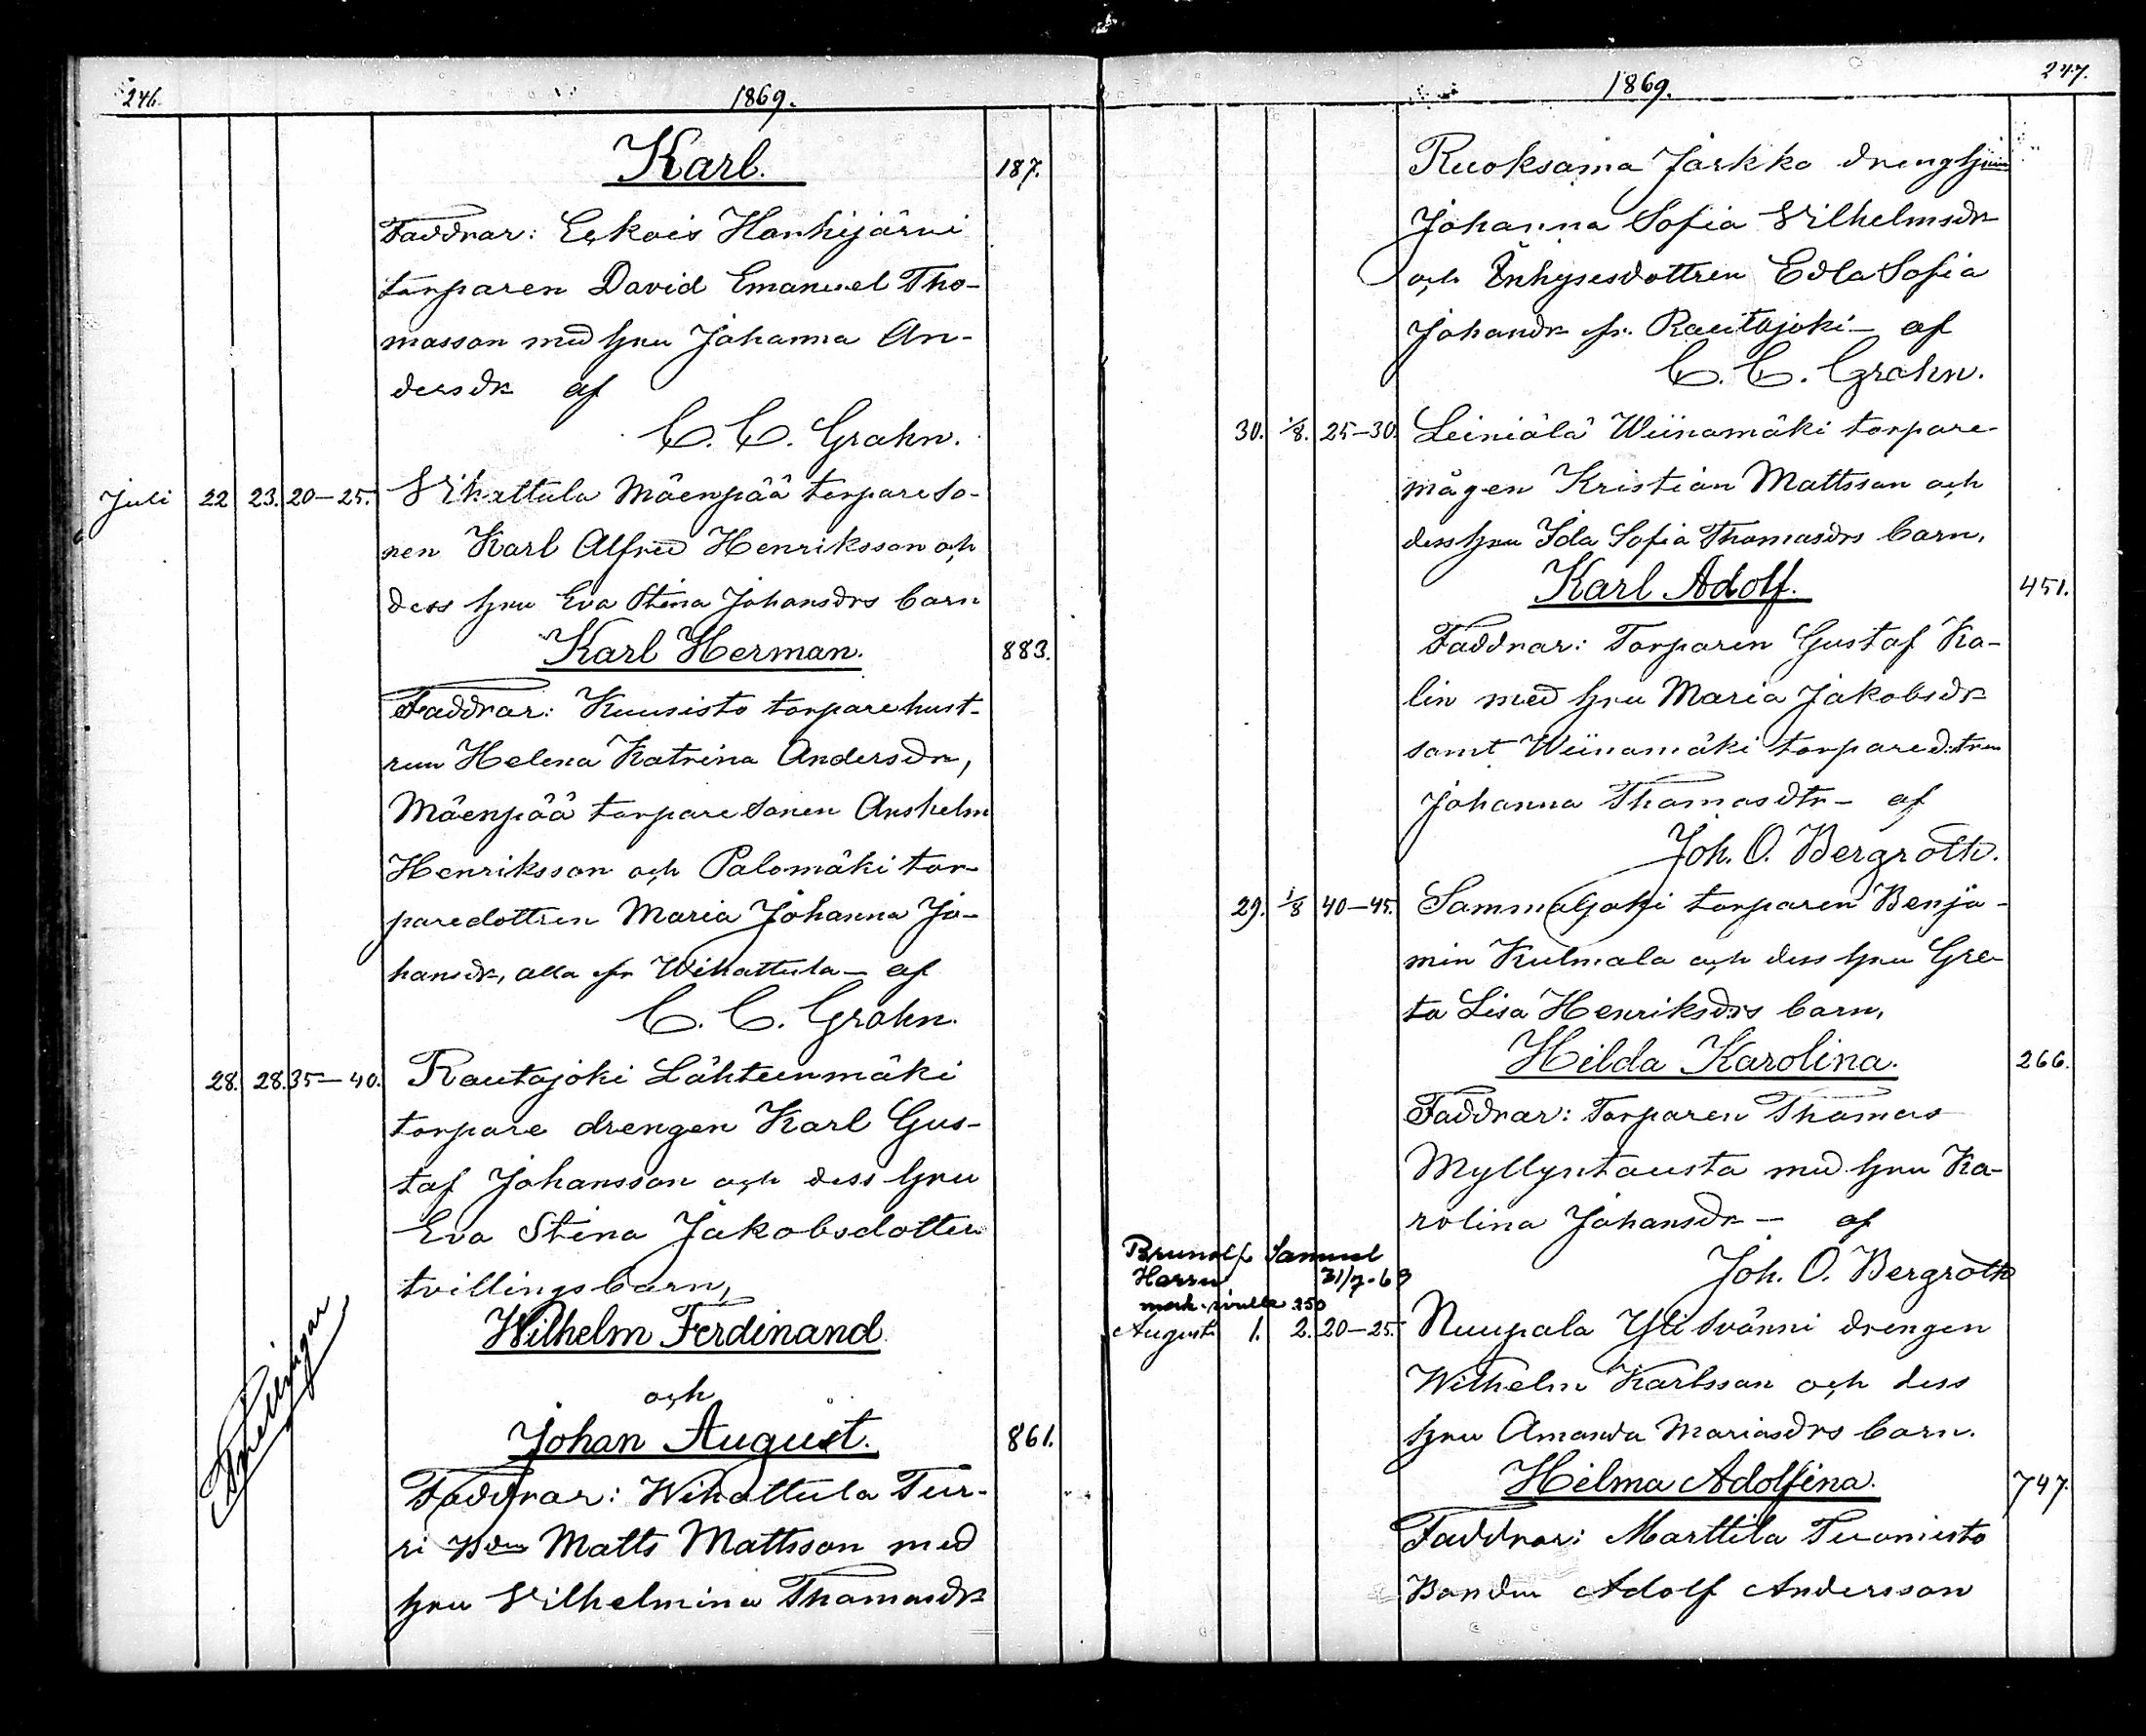 246.
1869.
Karl. 187.
Faddrar: Eckois Hanhijärvi
torparen David Emanuel Tho-
masson med hru Johanna An-
dersdr af
C. C. Grahn.
Juli 22 23. 20–25. Vihattula Mäenpää torpareso-
nen Karl Alfred Henriksson och
dess hru Eva Stina Johansdrs barn
Karl Herman. 883.
Faddrar: Kuusisto torparehust-
run Helena Katrina Andersdr,
Mäenpää torparesonen Anshelm
Henriksson och Palomäki tor-
paredottren Maria Johanna Jo-
hansdr, alla fr Wihattula – af
C. C. Grahn.
28. 28. 35–40. Rautajoki Lähteenmäki
torpare drengen Karl Gus-
taf Johansson och dess hru
Eva Stina Jakobsdotters
tvillingsbarn,
Wilhelm Ferdinand.
och
Tvillingar
Johan August. 861.
Faddrar: Wihattula Tur-
ri Matts Mattsson med
hru Vilhelmina Thomasdr
247.
1869.
Ruoksama Jarkko drenghrun
Johanna Sofia Vilhelmsdr
och Inhysesdottren Edla Sofia
Johansdr fr. Rautajoki – af
C. C. Grahn.
30. 1/8. 25–30. Leiniälä Wiinamäki torpare-
mågen Kristian Mattsson och
dess hru Ida Sofia Thomasdrs barn,
Karl Adolf. 451.
Faddrar: Torparen Gustaf Ka-
lin med hru Maria Jakobsdr
samt Wiinamäki torparedotren
Johanna Thomasdtr – af
Joh. O. Bergroth.
29. 1/8 40–45. Sammaljoki torparen Benja-
min Kulmala och dess hru Gre-
ta Lisa Henriksdrs barn,
Hilda Karolina. 266.
Faddrar: Torparen Thomas
Myllyntausta med hru Ka-
rolina Johansdr – af
Joh. O. Bergroth
Brunolf Samuel
31/7-69
250
August 1. 2. 20–25. Nuupala Yli Svänni drengen
Wilhelm Karlsson och dess
hru Amanda Mariasdrs barn.
Hilma Adolfina. 747.
Faddrar: Marttila Tuomisto
Bonden Adolf Andersson